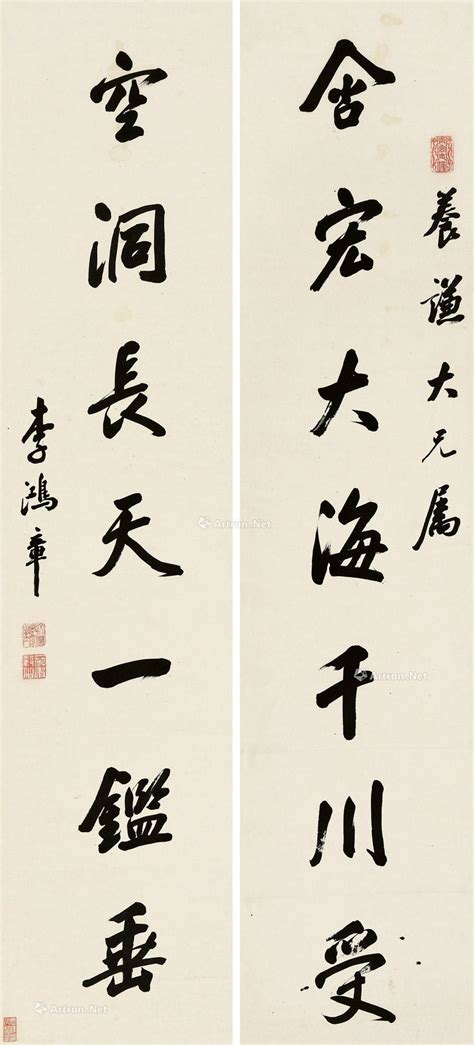 養謙大兄属
含宏大海千川受
空洞長天一鑑垂
李鴻章
Artron.Net
Artron.Net
Artron.Net
Artron.Net